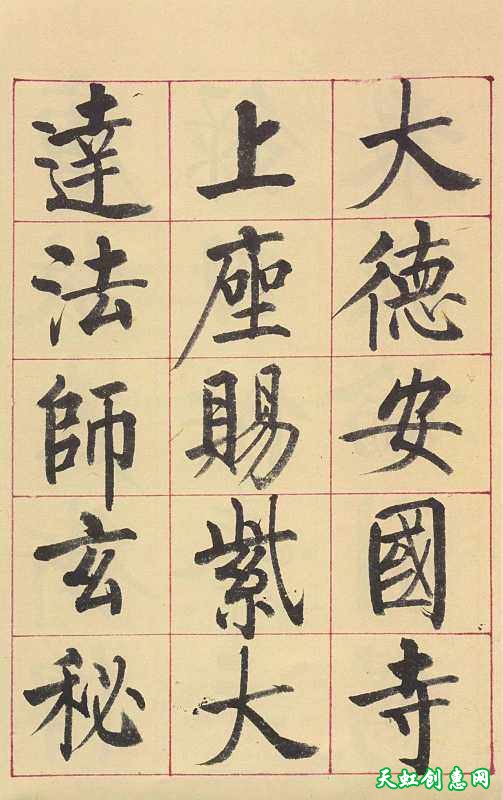 大德安國寺
上座賜紫大
達法師玄秘
天虹创惠网